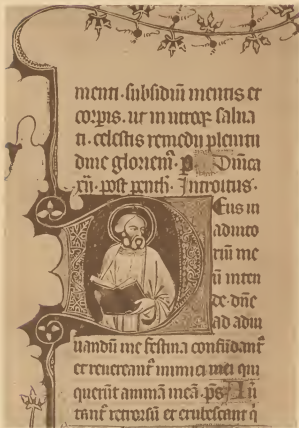 menti. subsidiū mentis et
corpis. ut in utroqȝ salua
ti. celestis remedii plenitu
dine gloriem̃. Dñica
xii. post penth. Introitus.
Deus in
adiuto
riū me
ū inten
de. dñe
ad adiu
uandū me festina confūdant̃
et reuereant̃ inimici mei qui
querūt animam meā. p̃s A
tant̃ retrorsū et erubescant q̇